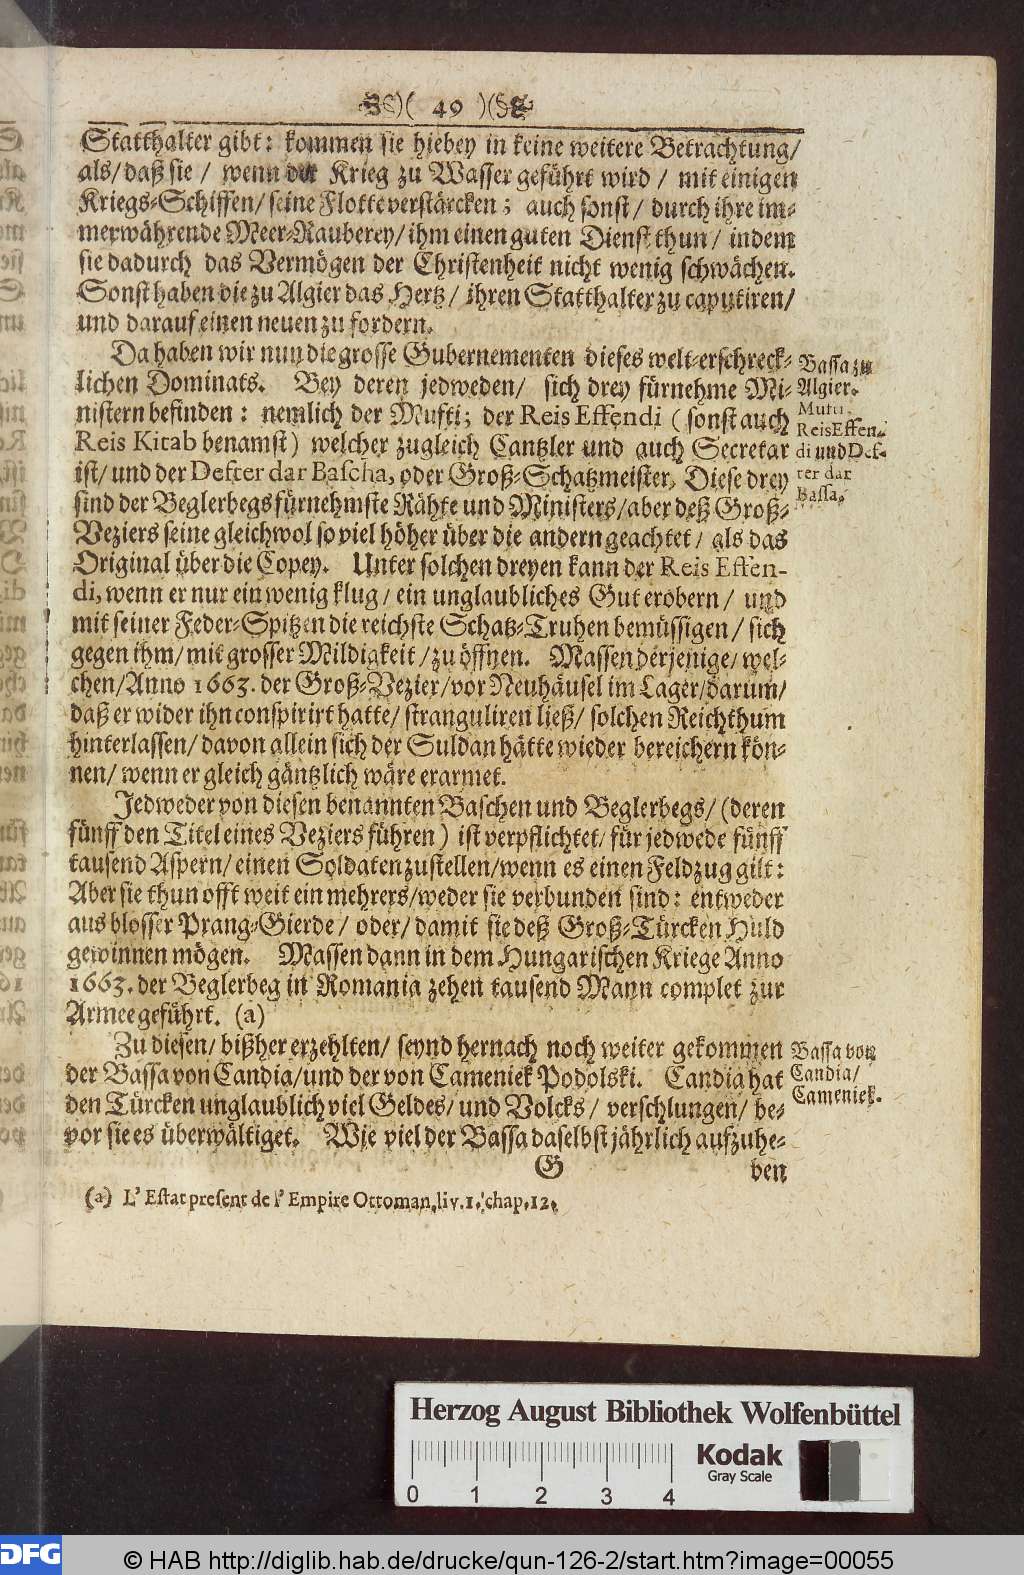 )( 49 )(
Statthalter gibt: kommen sie hiebey in keine weitere Betrachtung/
als/ daß sie / wenn der Krieg zu Wasser geführt wird / mit einigen
Kriegs-Schiffen/ seine Flotte verstärcken; auch sonst / durch ihre im-
merwährende Meer-Rauberey/ ihm einen guten Dienst thun / indem
sie dadurch das Vermögen der Christenheit nicht wenig schwächen.
Sonst haben die zu Algier das Hertz / ihren Statthalter zu caputiren/
und darauf einen neuen zu fordern.
Da haben wir nun die grosse Gubernementen dieses welt-erschreck-
lichen Dominats. Bey deren jedweden/ sich drey fürnehme Mi-
nistern befinden: nemlich der Mufti; der Reis Effendi (sonst auch
Reis Kitab benamst) welcher zugleich Cantzler und auch Secretar
ist/ und der Defter dar Bascha, oder Groß-Schatzmeister. Diese drey
sind der Beglerbegs fürnehmste Rähte und Ministers/ aber deß Groß-
Veziers seine gleichwol so viel höher über die andern geachtet / als das
Original über die Copey. Unter solchen dreyen kann der Reis Effen-
di, wenn er nur ein wenig klug / ein unglaubliches Gut erobern / und
mit seiner Feder-Spitzen die reichste Schatz-Truhen bemüssigen / sich
gegen ihm/ mit grosser Mildigkeit / zu öffnen. Massen derjenige/ wel-
chen/ Anno 1663. der Groß-Vezier/ vor Neuhäusel im Lager/ darum/
daß er wider ihn conspirirt hatte/ stranguliren ließ/ solchen Reichthum
hinterlassen/ davon allein sich der Suldan hätte wieder bereichern kön-
nen/ wenn er gleich gäntzlich wäre erarmet.
Jedweder von diesen benannten Baschen und Beglerbegs/ (deren
fünff den Titel eines Veziers führen) ist verpflichtet/ für jedwede fünff
tausend Aspern/ einen Soldaten zu stellen/ wenn es einen Feldzug gilt:
Aber sie thun offt weit ein mehrers/ weder sie verbunden sind: entweder
aus blosser Prang-Gierde / oder/ damit sie deß Groß-Türcken Huld
gewinnen mögen. Massen dann in dem Hungarischen Kriege Anno
1663. der Beglerbeg in Romania zehen tausend Mann complet zur
Armee geführt. (a)
Zu diesen/ bißher erzehlten/ seynd hernach noch weiter gekommen
der Bassa von Candia/ und der von Cameniek Podolski. Candia hat
den Türcken unglaublich viel Geldes/ und Volcks / verschlungen/ be-
vor sie es überwältiget. Wie viel der Bassa daselbst jährlich aufzuhe-
G ben
(a) L' Estat present de l' Empire Ottoman, liv. 1. chap. 12.
Bassa zu
Algier.
Mufti.
Reis Effen-
di und Def-
ter dar
Bassa.
Bassa von
Candia/
Cameniek.
Herzog August Bibliothek Wolfenbüttel
Kodak
Gray Scale
0 1 2 3 4
DFG
© HAB http://diglib.hab.de/drucke/qun-126-2/start.htm?image=00055